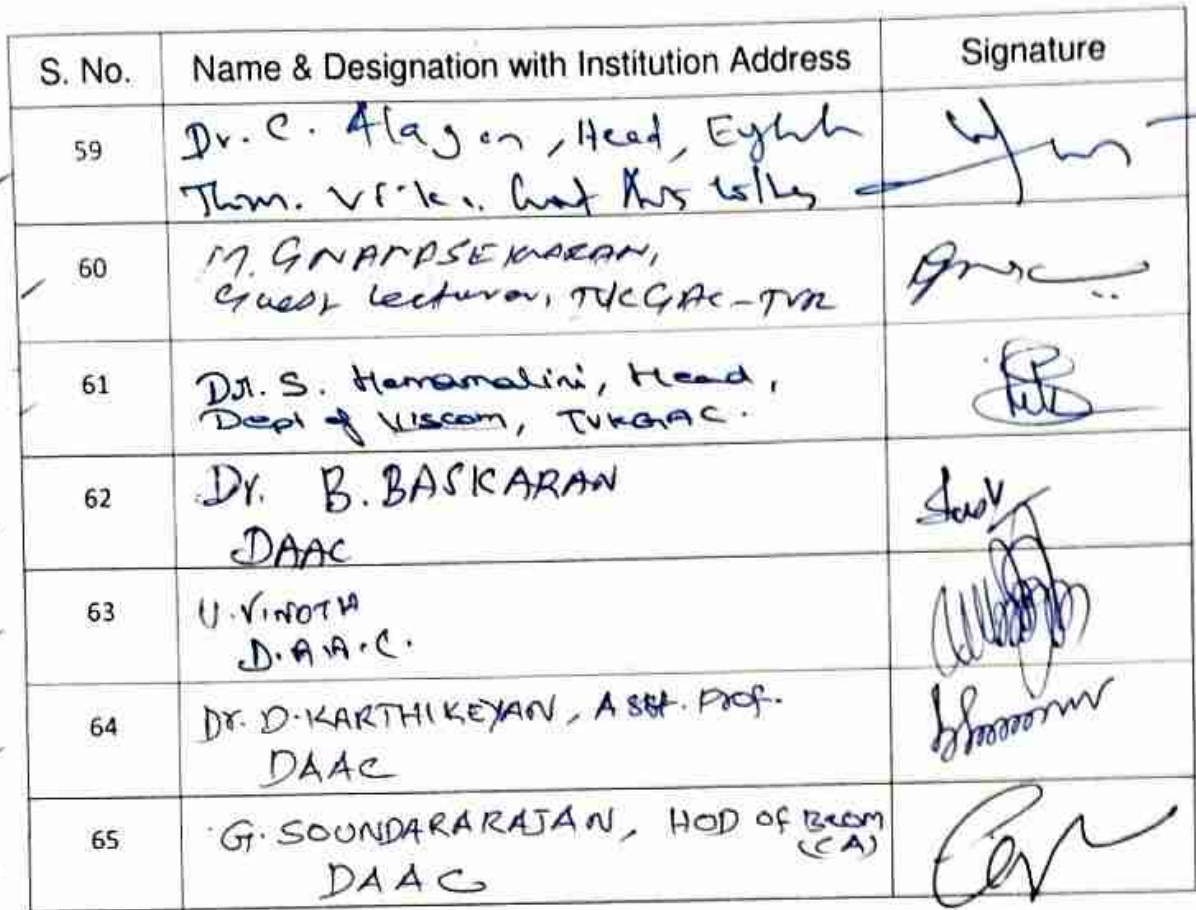 S. No. Name & Designation with Institution Address Signature
59 Dr. C. Alagan, Head,
Thiru. Vi. Ka. Govt Arts College
60 M. GNANASEKARAN,
Guest Lecturer, TVKGAC-TVR
61 Dr. S. Hemamalini, Head,
Dept of Viscom, TVKGAC.
62 Dr. B. BASKARAN
DAAC
63 U. VINOTH
D.A.A.C.
64 Dr. D. KARTHIKEYAN, Asst. Prof.
DAAC
65 G. SOUNDARARAJAN, HOD of BCOM
(CA)
DAAC